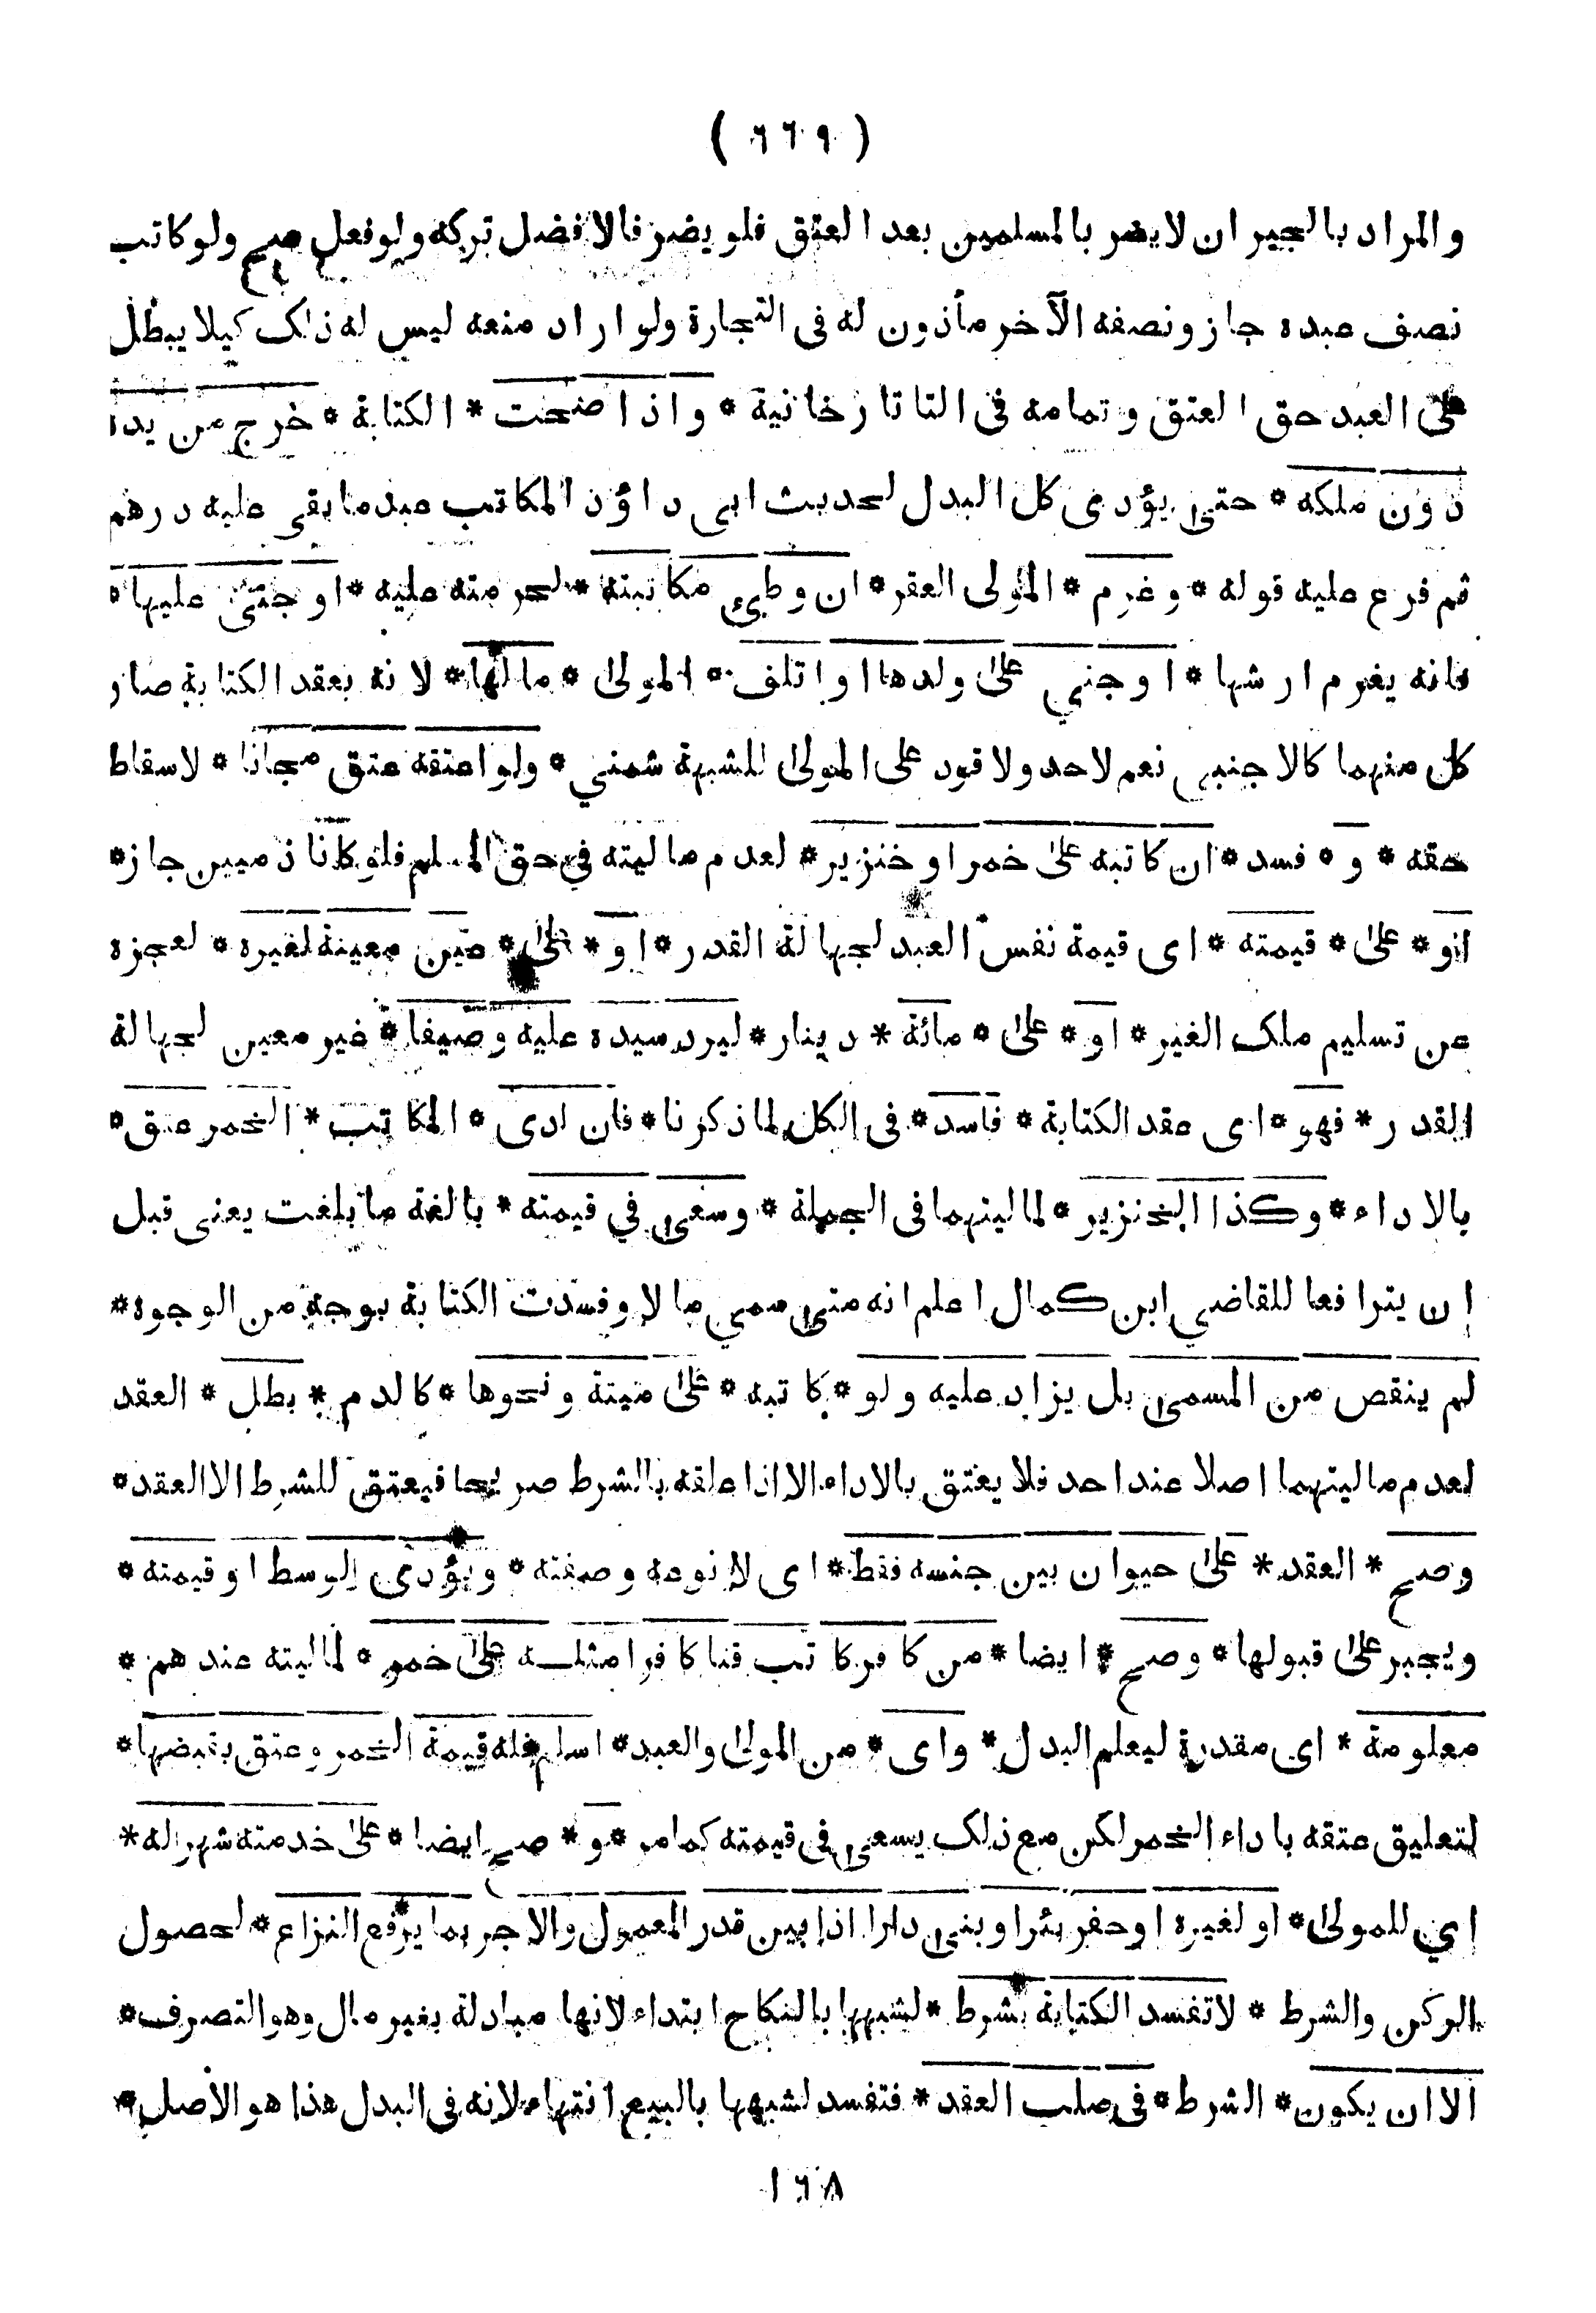 ( ٦٦٩ )
والمراد بالخير ان لا يضر بالمسلمين بعد العتق فلو يضر فالافضل تركه ولو فعل صح ولو كاتب
نصف عبده جاز ونصفه الآخر مأذون له فى التجارة ولو اراد منعه ليس له ذلك كيلا يبطل
على العبد حق العتق وتمامه فى التاتارخانية * واذا صحت * الكتابة * خرج من يده
دون ملكه * حتى يؤدى كل البدل لحديث ابى داؤد المكاتب عبد ما بقى عليه درهم
ثم فرع عليه قوله * وغرم * المولى العقر * ان وطئ مكاتبته * لحرمته عليه * او جنى عليها *
فانه يغرم ارشها * او جنى على ولدها او اتلف * المولى * مالها * لانه بعقد الكتابة صار
كل منهما كالاجنبى نعم لا حد ولا قود على المولى للشبهة شمني * ولو اعتقه عتق مجانا * لاسقاط
حقه * و * فسد * ان كاتبه على خمر او خنزير * لعدم ماليته في حق المسلم فلو كانا ذميين جاز *
او * على * قيمته * اى قيمة نفس العبد لجهالة القدر * او * على * عين معينة لغيره * لعجزه
عن تسليم ملك الغير * او * على * مائة * دينار * ليرد سيده عليه وصيفا * غير معين لجهالة
القدر * فهو * اى عقد الكتابة * فاسد * فى الكل لما ذكرنا * فان ادى * المكاتب * الخمر عتق *
بالاداء * وكذا الخنزير * لماليتهما فى الجملة * وسعى في قيمته * بالغة ما بلغت يعنى قبل
ان يترافعا للقاضي ابن كمال اعلم انه متى سمي مالا وفسدت الكتابة بوجه من الوجوه *
لم ينقص من المسمى بل يزاد عليه ولو * كاتبه * على ميتة ونحوها * كالدم * بطل * العقد
لعدم ماليتهما اصلا عند احد فلا يعتق بالاداء الا اذا علقه بالشرط صريحا فيعتق للشرط لا العقد *
وصح * العقد * على حيوان بين جنسه فقط * اى لا نوعه وصفته * ويؤدى الوسط او قيمته *
ويجبر على قبولها * وصح * ايضا * من كافر كاتب قنا كافرا مثله على خمر * لماليته عندهم *
معلومة * اى مقدرة ليعلم البدل * واى * من المولى والعبد * اسلم فله قيمة الخمر وعتق بقبضها *
لتعليق عتقه باداء الخمر لكن مع ذلك يسعى فى قيمته كما مر * و * صح ايضا * على خدمته شهرا له *
اي للمولى * او لغيره او حفر بئر او بنى دارا اذا بين قدر المعمول والآجر بما يرفع النزاع * لحصول
الركن والشرط * لا تفسد الكتابة بشرط * لشبهها بالنكاح ابتداء لانها مبادلة بغير مال وهو التصرف *
الا ان يكون * الشرط * فى صلب العقد * فتفسد لشبهها بالبيع انتهاء لانه فى البدل هذا هو الاصل *
١٦٨